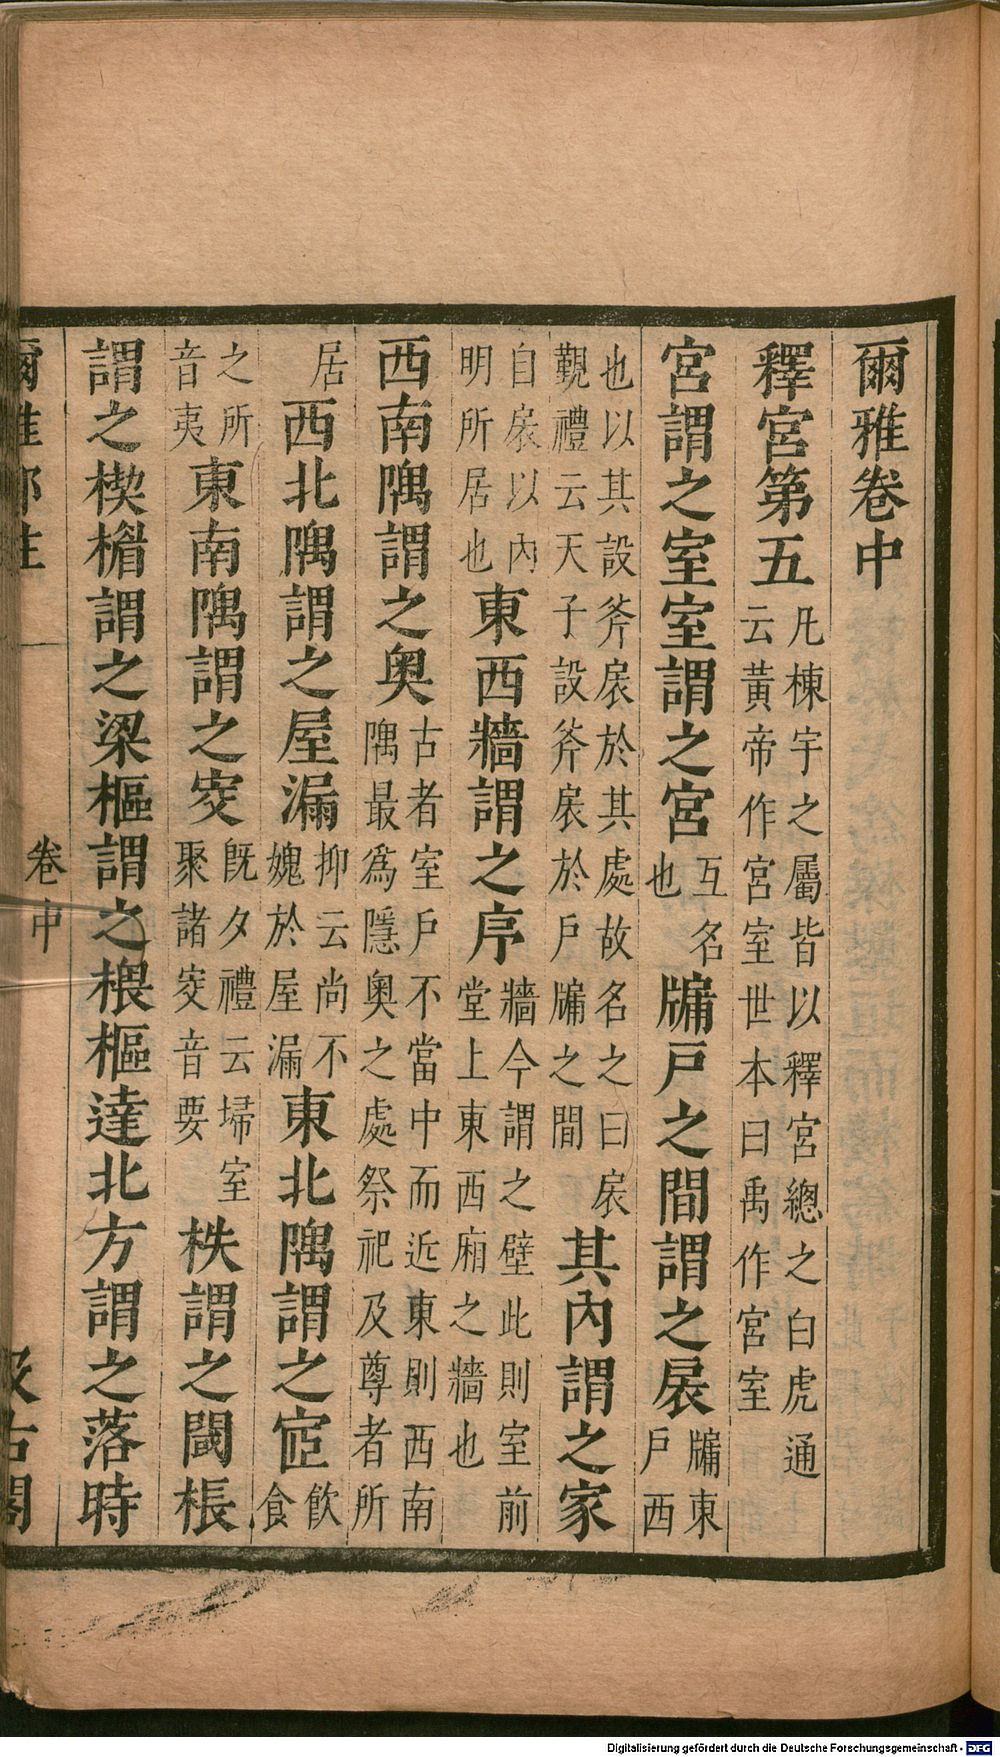 爾雅卷中
釋宮第五凡棟宇之屬皆以釋宮總之白虎通云黃帝作宮室世本曰禹作宮室
宮謂之室室謂之宮互名也牖戶之間謂之扆牖東戶西
也以其設斧扆於其處故名之曰扆覲禮云天子設斧扆於戶牖之間其內謂之家
自扆以內明所居也東西牆謂之序牆今謂之壁此則室前堂上東西廂之牆也
西南隅謂之奧古者室戶不當中而近東則西南隅最爲隱奧之處祭祀及尊者所
居西北隅謂之屋漏抑云尚不媿於屋漏東北隅謂之宧飲食
之所音夷東南隅謂之窔旣夕禮云埽室聚諸窔音要柣謂之閾棖
謂之楔楣謂之梁樞謂之椳樞達北方謂之落時
卷中
Digitalisierung gefördert durch die Deutsche Forschungsgemeinschaft - DFG